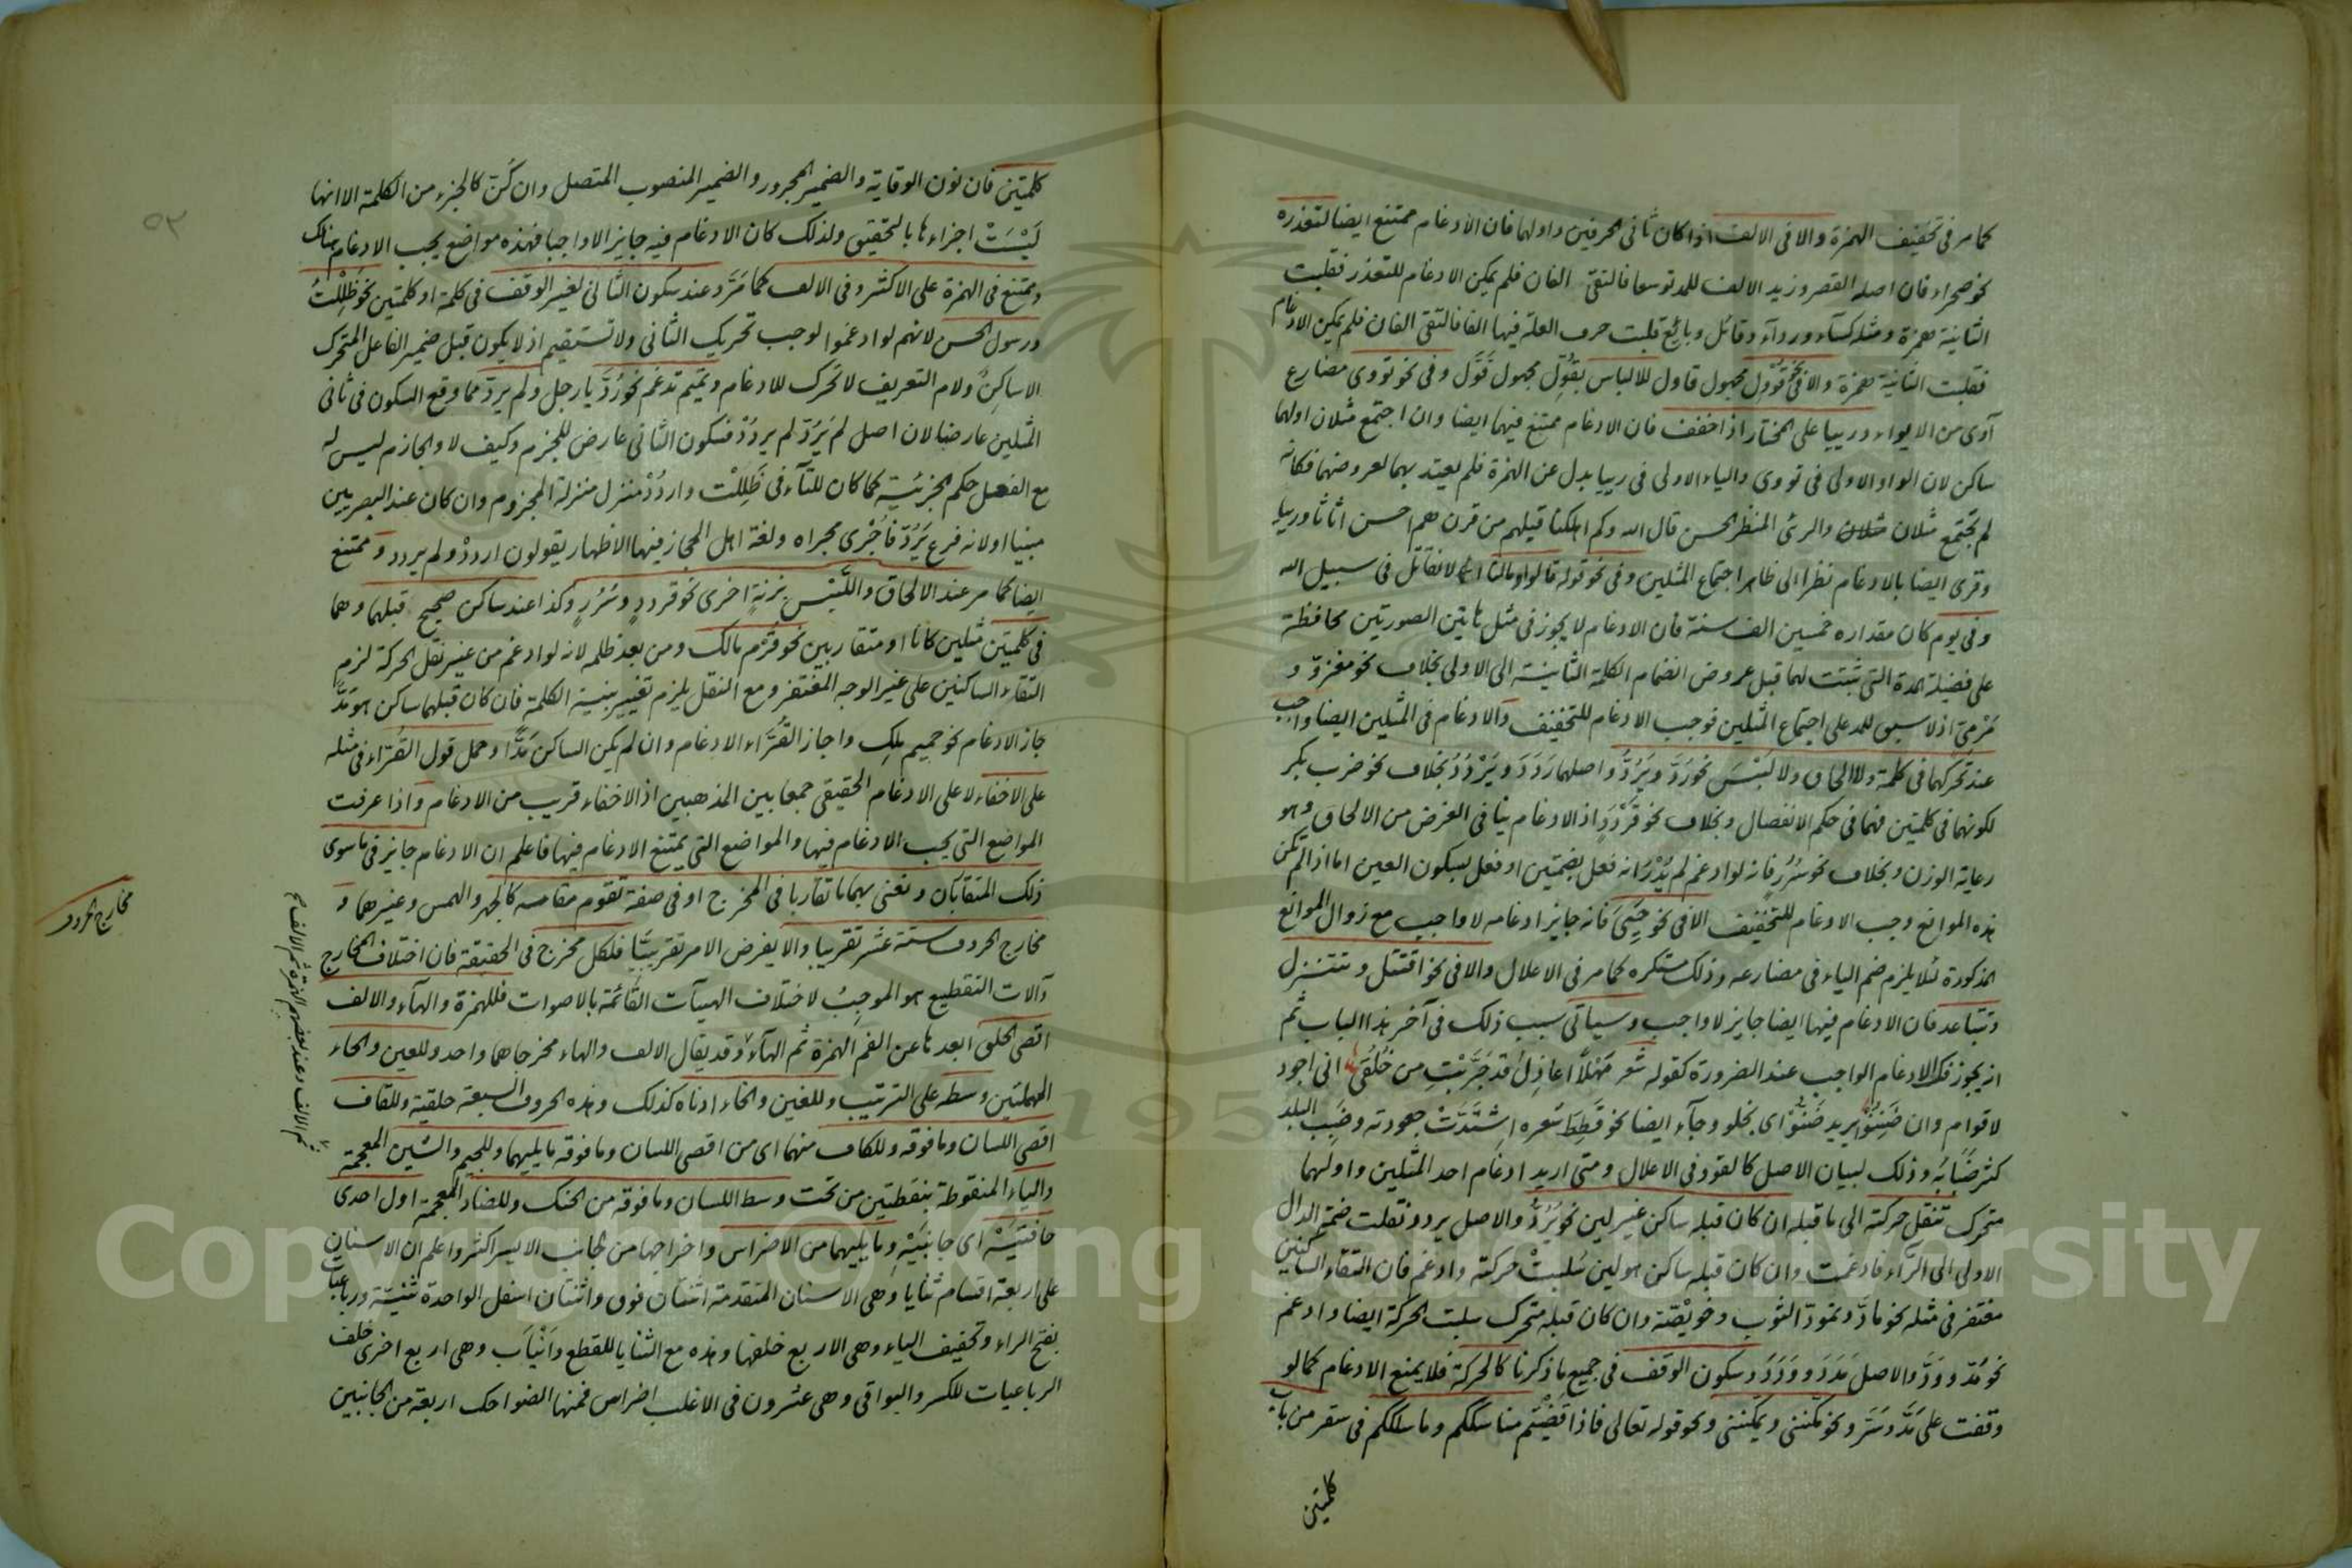 كما مر فى تخفيف الهمزة والا فى الالف اذا كان ثانى الحرفين واولهما فان الادغام ممتنع ايضا لتعذره
نحو صحراء فان اصله القصر وزيد الالف للمد توسعا فالتقى الفان فلم يمكن الادغام للتعذر فقلبت
الثانية همزة ومثله كسآء وردآء وقائل وبائع قلبت حرف العلة فيها الفا فالتقى الفان فلم يمكن الادغام
فقلبت الثانية همزة والا فى نحو قُوْوِل مجهول قاول للالباس بقُوِّل مجهول قَوَّل وفى نحو تووى مضارع
آوى من الايواء ورييا على المختار اذا خفف فان الادغام ممتنع فيهما ايضا وان اجتمع مثلان اولهما
ساكن لان الواو الاولى فى تووى والياء الاولى فى رييا بدل عن الهمزة فلم يعتد بهما لعروضهما فكانه
لم تجتمع مثلان مثلان والرئى المنظر الحسن قال الله وكم اهلكنا قبلهم من قرن هم احسن اثاثا ورييا
وقرى ايضا بالادغام نظرا الى ظاهر اجتماع المثلين وفى نحو قوله قالوا ومالنا الا نقاتل فى سبيل الله
وفى يوم كان مقداره خمسين الف سنة فان الادغام لا يجوز فى مثل هاتين الصورتين محافظة
على فضيلة المدة التى ثبتت لهما قبل عروض انضمام الكلمة الثانية الى الاولى بخلاف نحو مغزوّ و
مَرْمِىّ اذ لا سبق للمد على اجتماع المثلين فوجب الادغام للتخفيف والادغام فى المثلين ايضا واجب
عند تحركهما فى كلمة ولا الحاق ولا لَبْسَ نحو رَدَّ ويَرُدُّ واصلهما رَدَدَ ويَرْدُدُ بخلاف نحو ضرب بكر
لكونهما فى كلمتين فهما فى حكم الانفصال وبخلاف نحو قَرْدَدٍ اذ الادغام ينافى الغرض من الالحاق وهو
رعاية الوزن وبخلاف نحو سُرُر فانه لو ادغم لم يُدْرَ انه فعل بضمتين او فعل بسكون العين اما اذا لم تكن
هذه الموانع وجب الادغام للتخفيف الا فى نحو حَيِىَ فانه جايز ادغامه لا واجب مع زوال الموانع
المذكورة لئلا يلزم ضم الياء فى مضارعه وذلك مستكره كما مر فى الاعلال والا فى نحو اقتتل وتتنزل
وتتباعد فان الادغام فيها ايضا جايز لا واجب وسياتى سبب ذلك فى آخر هذا الباب ثم
انه يجوز فك الادغام الواجب عند الضرورة كقوله شعر مَهْلًا اعاذِلَ قد جَرَّبْتِ من خُلُقى انى اجود
لاقوام وان ضَنِنُوْا يريد ضَنُّوْا اى بخلو وجآء ايضا نحو قَطِطَ شعره اشتدّتْ جعودته وضَبِب البلد
كثر ضَبَابُه وذلك لبيان الاصل كالقود فى الاعلال ومتى اريد ادغام احد المثلين واولهما
متحرك تنقل حركته الى ما قبله ان كان قبله ساكن غير لين نحو يَرُدُّ والاصل يردد نقلت ضمة الدال
الاولى الى الرّاء فادغمت وان كان قبله ساكن هو لين سُلبتْ حركته وادغم فان التقاء الساكنين
مغتفر فى مثله نحو مادّ وتمودّ الثوب وخويْصّة وان كان قبله متحرك سلبت الحركة ايضا وادغم
نحو مَدّ ووَدَّ والاصل مَدَدَ ووَدَدَ وسكون الوقف فى جميع ما ذكرنا كالحركة فلا يمنع الادغام كما لو
وقفت على مَدَّ وسَرَّ ونحو مكّننى ويمكّننى ونحو قوله تعالى فاذا قضَيْتم مناسككم وما سلككم فى سقر من باب
كلمتين
كلمتين فان نون الوقاية والضمير المجرور والضمير المنصوب المتصل وان كُنّ كالجزء من الكلمة الا انها
لَيْسَتْ اجزاءها بالتحقيق ولذلك كان الادغام فيه جايز الا واجبا فهذه مواضع يجب الادغام هناك
ويمتنع فى الهمزة على الاكثر وفى الالف كما مَرَّ وعند سكون الثانى لغير الوقف فى كلمة او كلمتين نحو ظَلِلْتُ
ورسول الحسن لانهم لو ادغموا لوجب تحريك الثانى ولا تستقيم اذ لا يكون قبل ضمير الفاعل المتحرك
الا ساكِنٌ ولام التعريف لا تحرك للادغام وتميم تدغم نحو رُدَّ يا رجل ولم يردّ مما وقع السكون فى ثانى
المثلين عارضا لان اصل لم يَرُدّ لم يردُدْ فسكون الثانى عارض للجزم وكيف لا والجازم ليس له
مع الفعل حكم الجزئية كما كان للتآء فى ظَلِلْت واردُدْ منزل منزلة المجزوم وان كان عند البصريين
مبنيا اولانه فرع يَرُدّ فاُجْرى مجراه ولغة اهل الحجاز فيهما الاظهار يقولون اردد ولم يردد وممتنع
ايضا كما مر عند الالحاق واللَّبْس بزنة اخرى نحو قرددٍ وسُرُرٍ وكذا عند ساكن صحيح قبلهما وهما
فى كلمتين مثلين كانا او متقاربين نحو قَرْم مالك ومن بعد ظلمه لانه لو ادغم من غير نقل الحركة لزم
التقاء الساكنين على غير الوجه المغتفر ومع النقل يلزم تغيير بنية الكلمة فان كان قبلهما ساكن هو مَدَّةٌ
جاز الادغام نحو حميم ملِك واجاز القُرَّاء الادغام وان لم يكن الساكن مَدًّا وحمل قول القُرّاء فى مثله
على الاخفاء لا على الادغام الحقيقى جمعا بين المذهبين اذ الاخفاء قريب من الادغام واذا عرفت
المواضع التى يجب الادغام فيها والمواضع التى يمتنع الادغام فيها فاعلم ان الادغام جايز فى ما سوى
ذلك المتقابان ونعنى بهما ما تقاربا فى المخرج او فى صفة تقوم مقامه كالجهر والهمس وغيرهما و
مخارج الحروف ستة عشر تقريبا والا يفرض الامر تقريبيًّا فلكل مخرج فى الحقيقة فان اختلاف المخارج
وآلات التقطيع هو الموجِبُ لاختلاف الهيآت القائمة بالاصوات فللهمزة والهآء والالف
اقصى الحلق ابعدها عن الفم الهمزة ثم الهآء وقد يقال الالف والهاء مخرجاهما واحد وللعين والحاء
المهملتين وسطه على الترتيب وللغين والخاء ادناه كذلك وهذه الحروف السبعة حلقية وللقاف
اقصى اللسان وما فوقه وللكاف منهما اى من اقصى اللسان وما فوقه ما يليهما وللجيم والشين المعجمة
والياء المنقوطة بنقطتين من تحت وسط اللسان وما فوقه من الحنك وللضاد المعجمة اول احدى
حافتيَيْه اى جانبَيْهِ وما يليهما من الاضراس واخراجها من جانب الايسر اكثر واعلم ان الاسنان
على اربعة اقسام ثنايا وهى الاسنان المتقدمة اثنتان فوق واثنتان اسفل الواحدة ثنيّة ورباعيات
بفتح الراء وتخفيف الياء وهى الاربع خلفها وهذه مع الثنايا للقطع وانْيَاب وهى اربع اخرى خلف
الرباعيات للكسر والبواقى وهى عشرون فى الاغلب اضراس فمنها الضواحك اربعة من الجانبين
ثم الالف وعند بعضهم الهمزة ثم الالف
مخارج الحروف
٥٢
Copyright © King Saud University
195